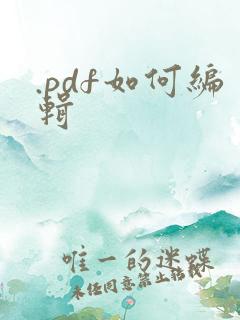 .pdf如何編
輯
唯一的迷蝶
未經同意禁止轉載